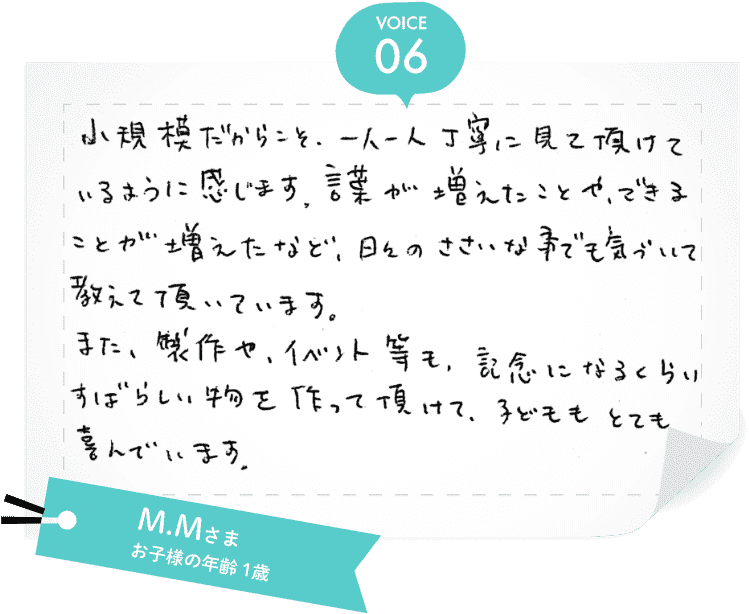 VOICE
06
小規模だからこそ、一人一人丁寧に見て頂けて
いるように感じます。言葉が増えたことや、できる
ことが増えたなど、日々のささいな事でも気づいて
教えて頂いています。
また、製作や、イベント等も、記念になるくらい
すばらしい物を作って頂けて、子どもも とても
喜んでいます。
M.Mさま
お子様の年齢 1歳